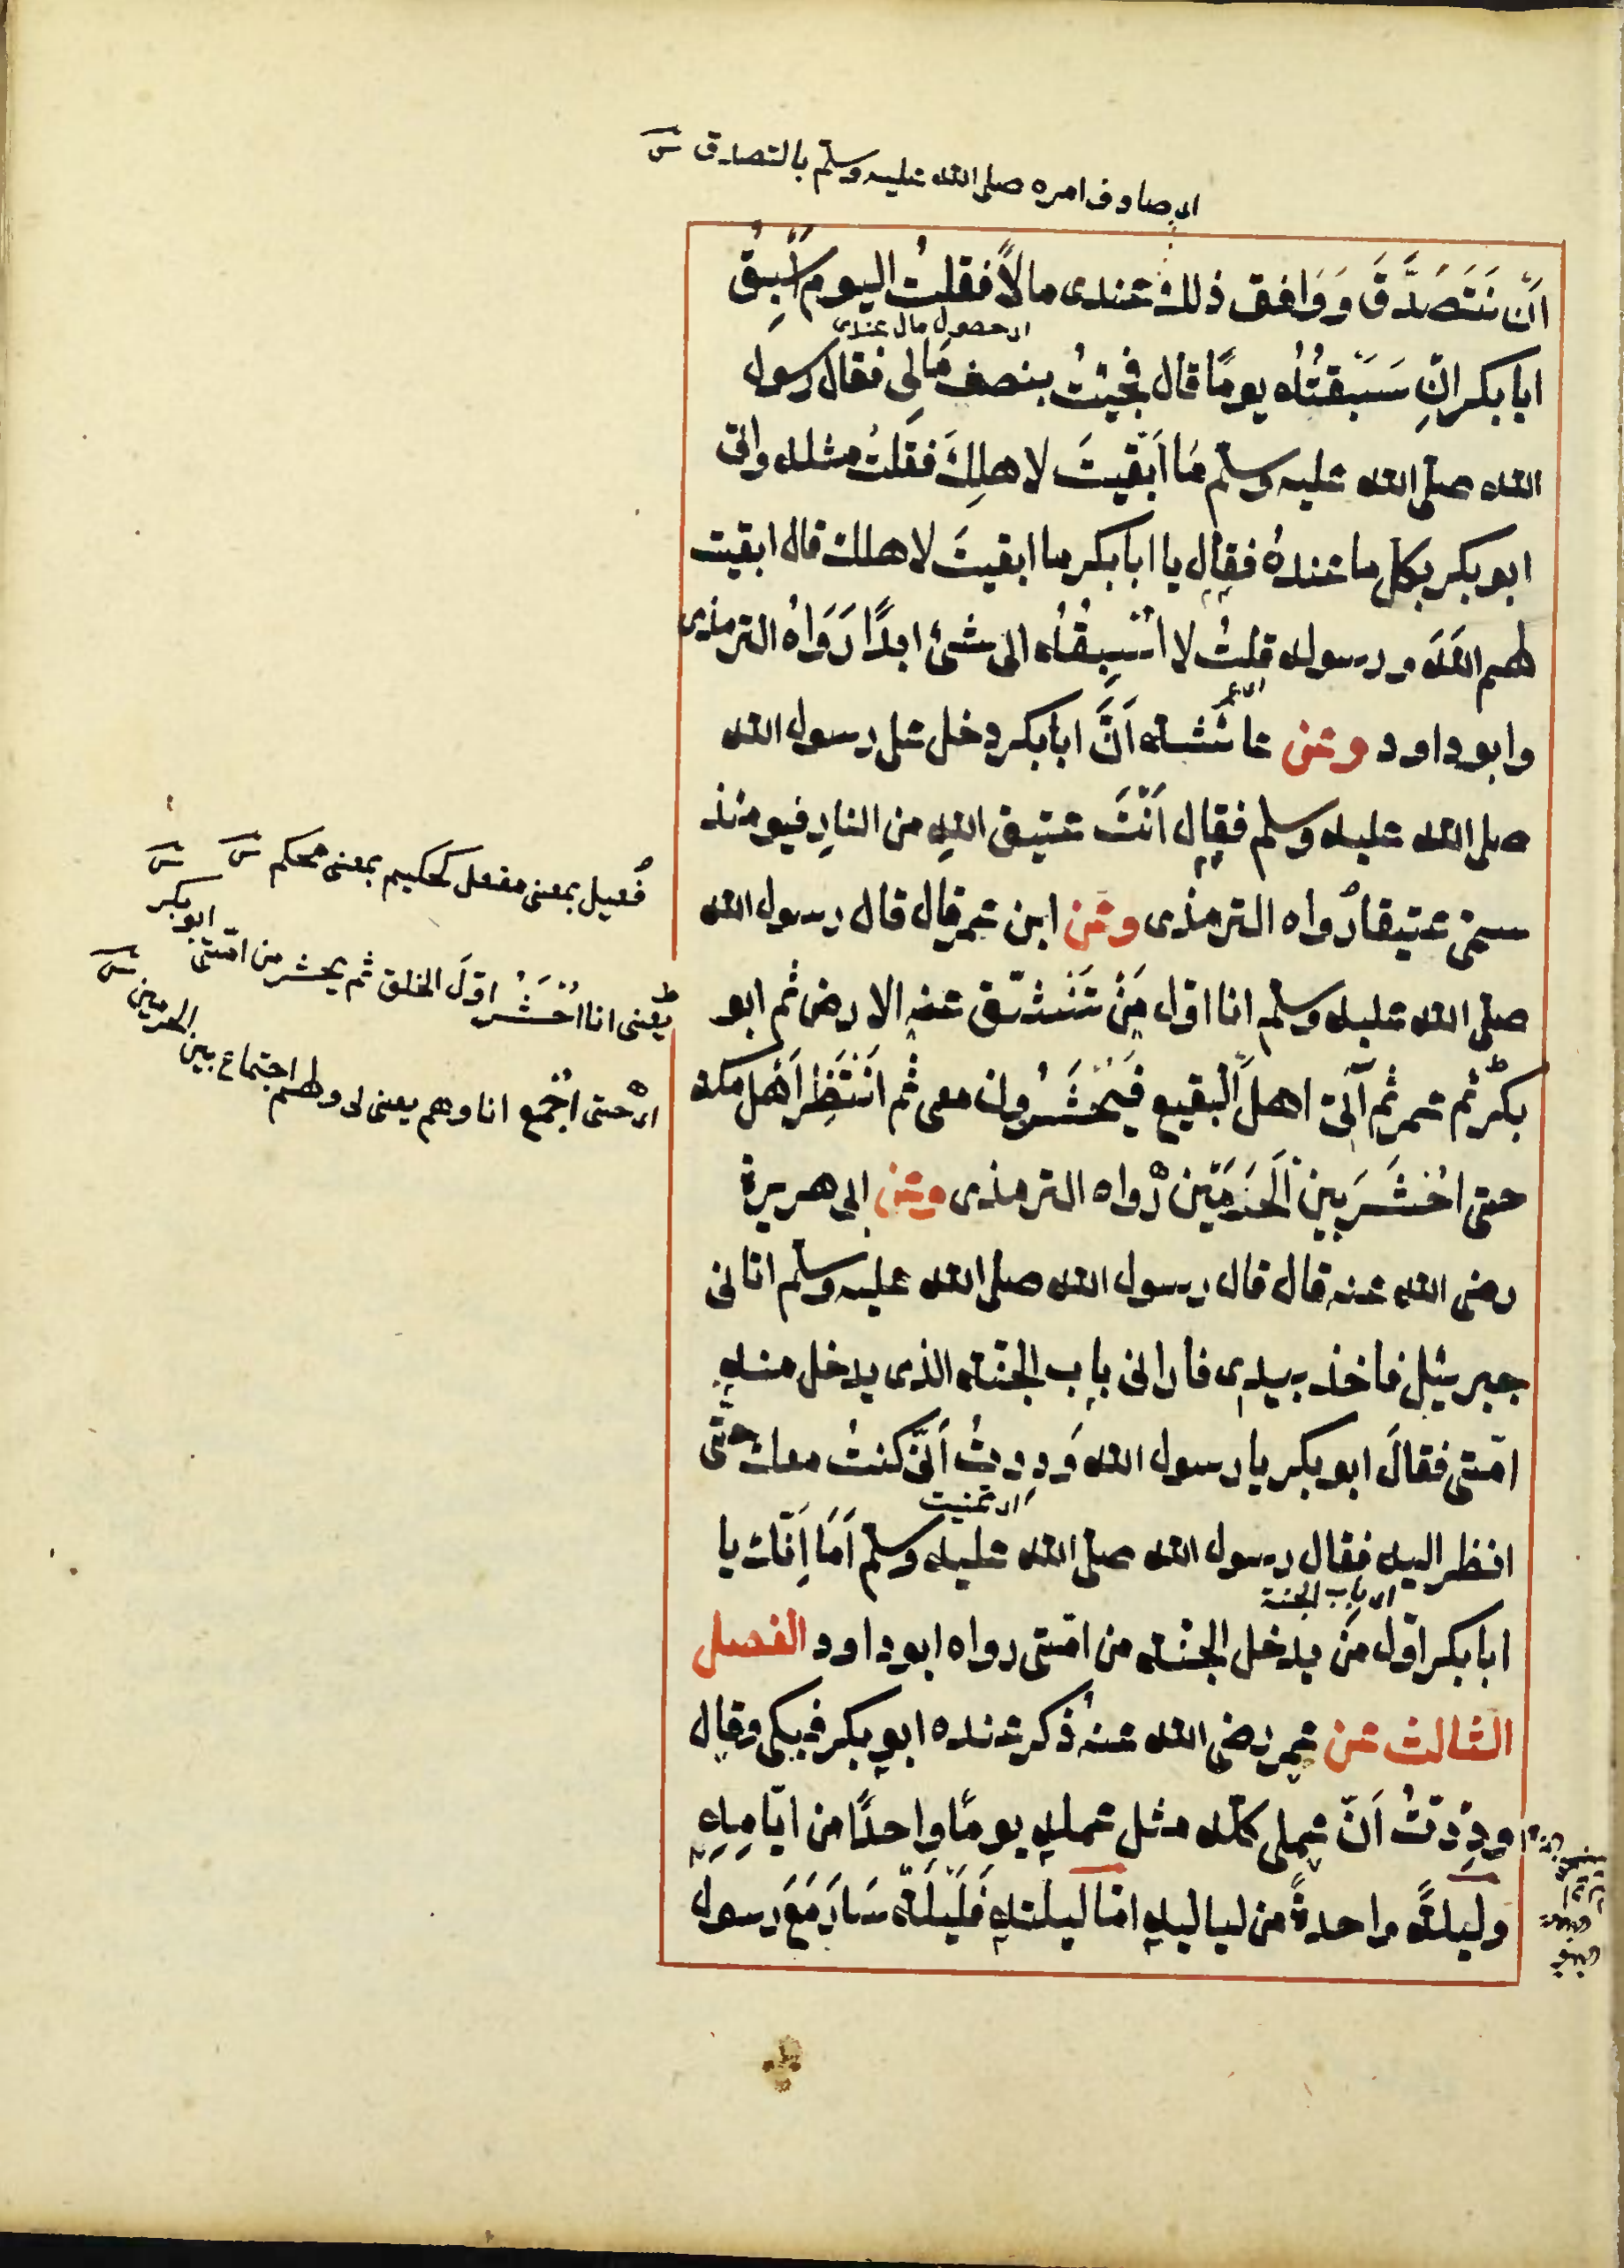 اى صادف امره صلى الله عليه وسلم بالتصدق
اَنْ نَتَصَدَّقَ وَوَافق ذلك عندى مالاً فقلتُ اليوم اَسْبِقُ
اى حصول مال عندى
ابا بكر اِنْ سَبَقْتُه يومًا قال فجئتُ بنصف مَالِى فقال رسول
الله صلى الله عليه وسلم مَا اَبْقيتَ لاهلِكَ فقلتُ مثله واتى
ابو بكر بكل ما عندهُ فقال يا ابا بكر ما ابقيتَ لاهلك قال ابقيت
لهم اللهَ ورسوله قلتُ لا اسْبِقُه الى شئ ابدًا رَوَاهُ الترمذى
وابو داود وعن عائشة اَنَّ ابا بكر دخل على رسول الله
صلى الله عليه وسلم فقال اَنْتَ عتيق اللهِ من النارِ فيومئذ
سمى عتيقا رواه الترمذى وعن ابن عمر قال قال رسول الله
صلى الله عليه وسلم انا اول مَنْ تَنْشَقّ عنه الارض ثم ابو
بكر ثم عمر ثم آتى اهلَ البقيع فَيُحْشَرُون معى ثم اَنْتَظِر اَهْل مكة
حتى اُحْشَرَ بين الحَرَمَيْن رواه الترمذى وعن ابى هريرة
رضى الله عنه قال قال رسول الله صلى الله عليه وسلم اتانى
جبرئيل فاخذ بيدى فارانى باب الجنة الذى يدخل منه
امتى فقالَ ابو بكر يا رسول الله وَدِدتُ اَنّى كنتُ معك حتّى
اى تمنيت
انظر اليه فقال رسول الله صلى الله عليه وسلم اَمَا اِنّك يا
اى باب الجنة
ابا بكر اوّل مَن يدخل الجنة من امّتى رواه ابو داود الفصل
الثالث عن عمر رضى الله عنه ذُكر عنده ابو بكر فبكى وقال
ودِدْتُ اَنّ عملى كلّه مثل عمله يومًا واحدًا من ايّامِهِ
وليلةً واحدةً من لياليه امّا ليلته فَلَيْلَة سَارَ مَعَ رسول
فعيل بمعنى مفعل كحكيم بمعنى محكم
يعنى انا اُحْشَرُ اوّلَ الخلق ثم يحشر من امّتى ابو بكر
اى حتى اُجْمَع انا وهم يعنى لى ولهم اجتماع بين الحرمين